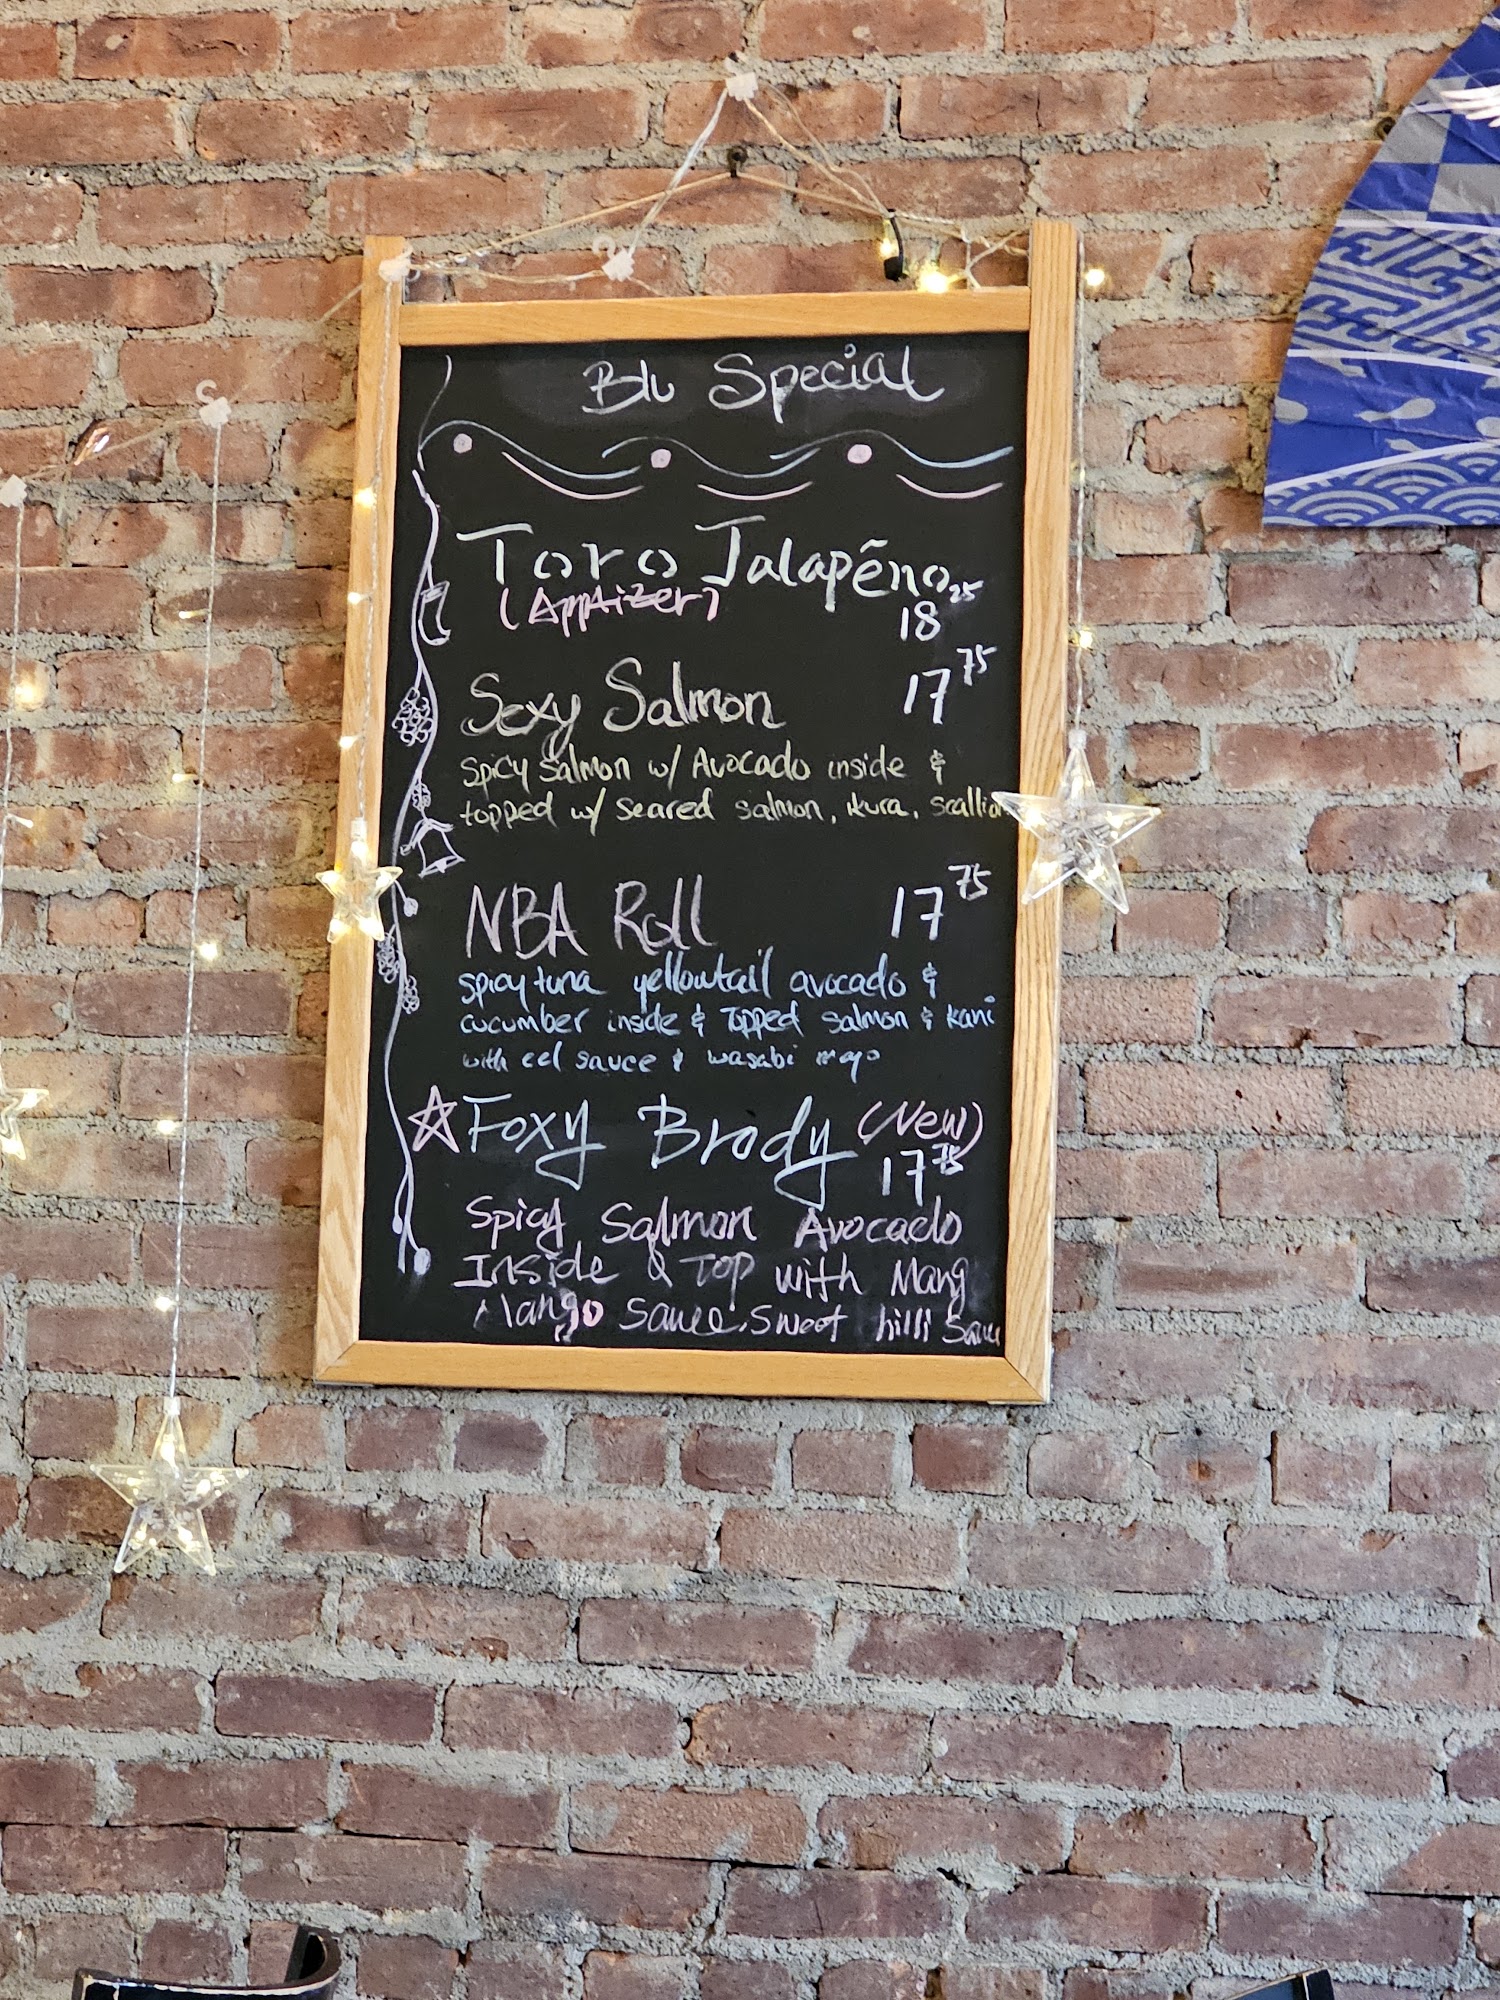 Blu Special
Toro Jalapēno
(Apptizer) 18 25
Sexy Salmon 17 75
spicy salmon w/ Avocado inside &
topped w/ seared salmon, ikura,
NBA Roll 17 75
spicy tuna yellowtail avocado &
cucumber inside & Topped salmon & kani
with eel sauce & wasabi mayo
Foxy Brody (New)
17 75
Spicy Salmon Avocado
Inside & Top with Mang
Mango Sauce. Sweet hilli Sauce